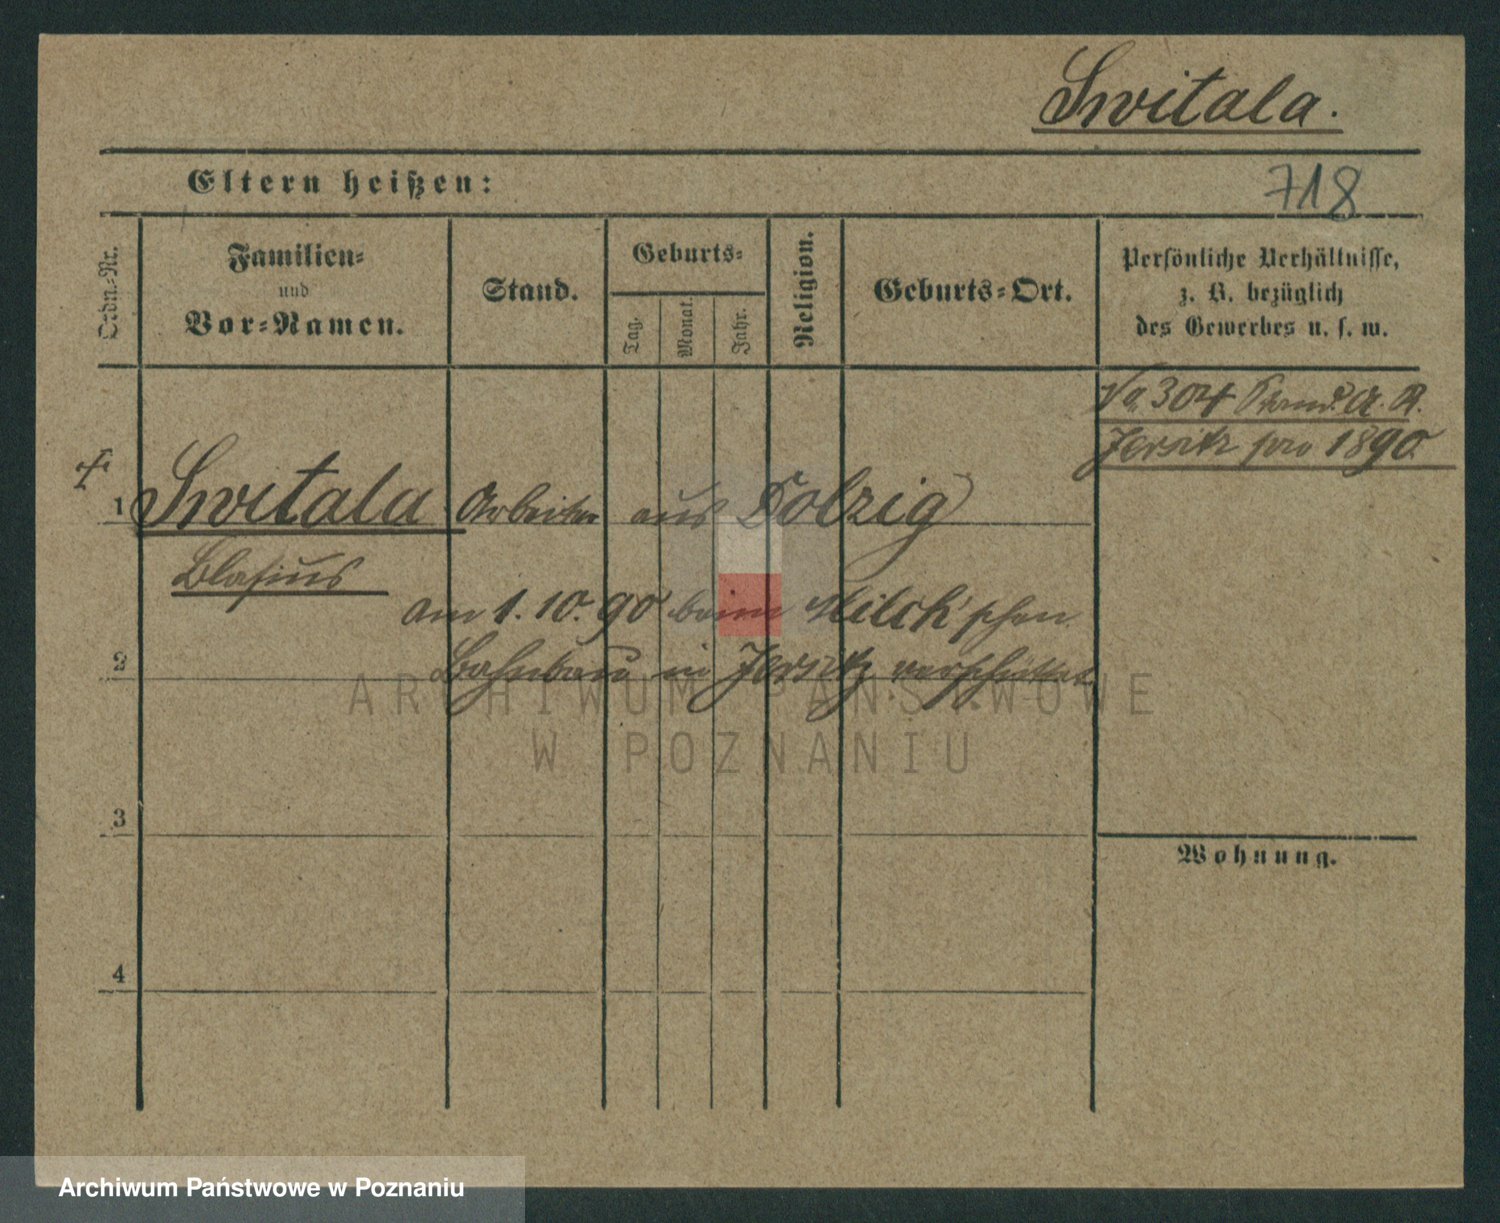 Switala.
Eltern heißen:
718
Ordn.-Nr.
Familien-
und
Vor-Namen.
Stand.
Geburts-
Tag.
Monat.
Jahr.
Religion.
Geburts-Ort.
Persönliche Verhältnisse,
z. B. bezüglich
des Gewerbes u. s. w.
No 304 Stand. A. R.
Jersitz pro 1890.
1 Switala Arbeiter aus Dolzig
Blasius
am 1. 10. 90 beim Milch'schen
2 Bahnbau in Jersitz verschüttet.
3
Wohnung.
4
ARCHIWUM PAŃSTWOWE
W POZNANIU
Archiwum Państwowe w Poznaniu